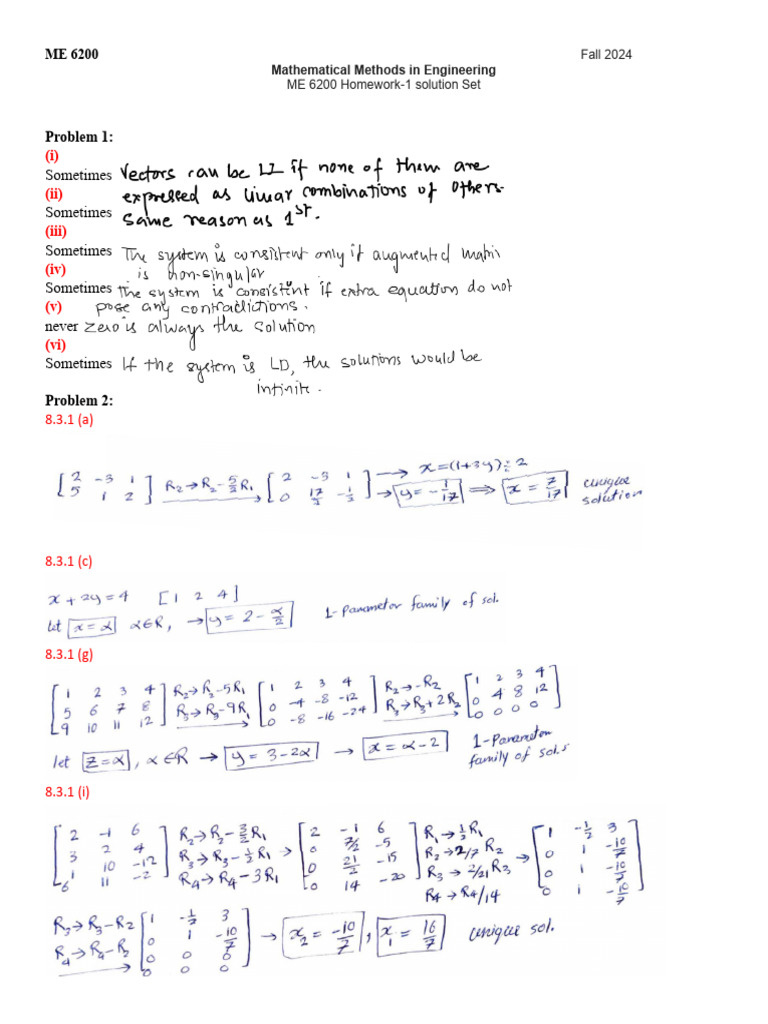 ME 6200
Fall 2024
Mathematical Methods in Engineering
ME 6200 Homework-1 solution Set
Problem 1:
(i)
Sometimes Vectors can be LI if none of them are
(ii) expressed as linear combinations of others.
Sometimes Same reason as 1st.
(iii)
Sometimes The system is consistent only if augmented matrix
(iv) is non-singular
Sometimes The system is consistent if extra equation do not
(v) pose any contradictions.
never Zero is always the solution
(vi)
Sometimes If the system is LD, the solutions would be
infinite.
Problem 2:
8.3.1 (a)
[2 -3 1 R2→R2-5/2R1 [2 -3 1 → x=(1+3y)÷2
5 1 2] 0 17/2 -1/2] → y=-1/17 ⇒ x=7/17 unique solution
8.3.1 (c)
x+2y=4 [1 2 4]
let x=α α∈R, → y=2-α/2 1-Parameter family of sol.
8.3.1 (g)
[1 2 3 4 R2→R2-5R1 [1 2 3 4 R2→-R2 [1 2 3 4
5 6 7 8 R3→R3-9R1 0 -4 -8 -12 R3→R3+2R2 0 4 8 12
9 10 11 12] 0 -8 -16 -24] 0 0 0 0]
let z=α, α∈R → y=3-2α → x=α-2 1-Parameter family of sol.s
8.3.1 (i)
[2 -1 6 R2→R2-3/2R1 [2 -1 6 R1→1/2R1 [1 -1/2 3
3 2 4 R3→R3-1/2R1 → 0 7/2 -5 R2→2/7R2 → 0 1 -10/7
1 10 -12 R4→R4-3R1 0 21/2 -15 R3→2/21R3 0 1 -10/7
6 11 -2] 0 14 -20] R4→R4/14 0 1 -10/7]
R3→R3-R2 [1 -1/2 3
R4→R4-R2 0 1 -10/7 → x2=-10/7, x1=16/7 unique sol.
0 0 0
0 0 0]